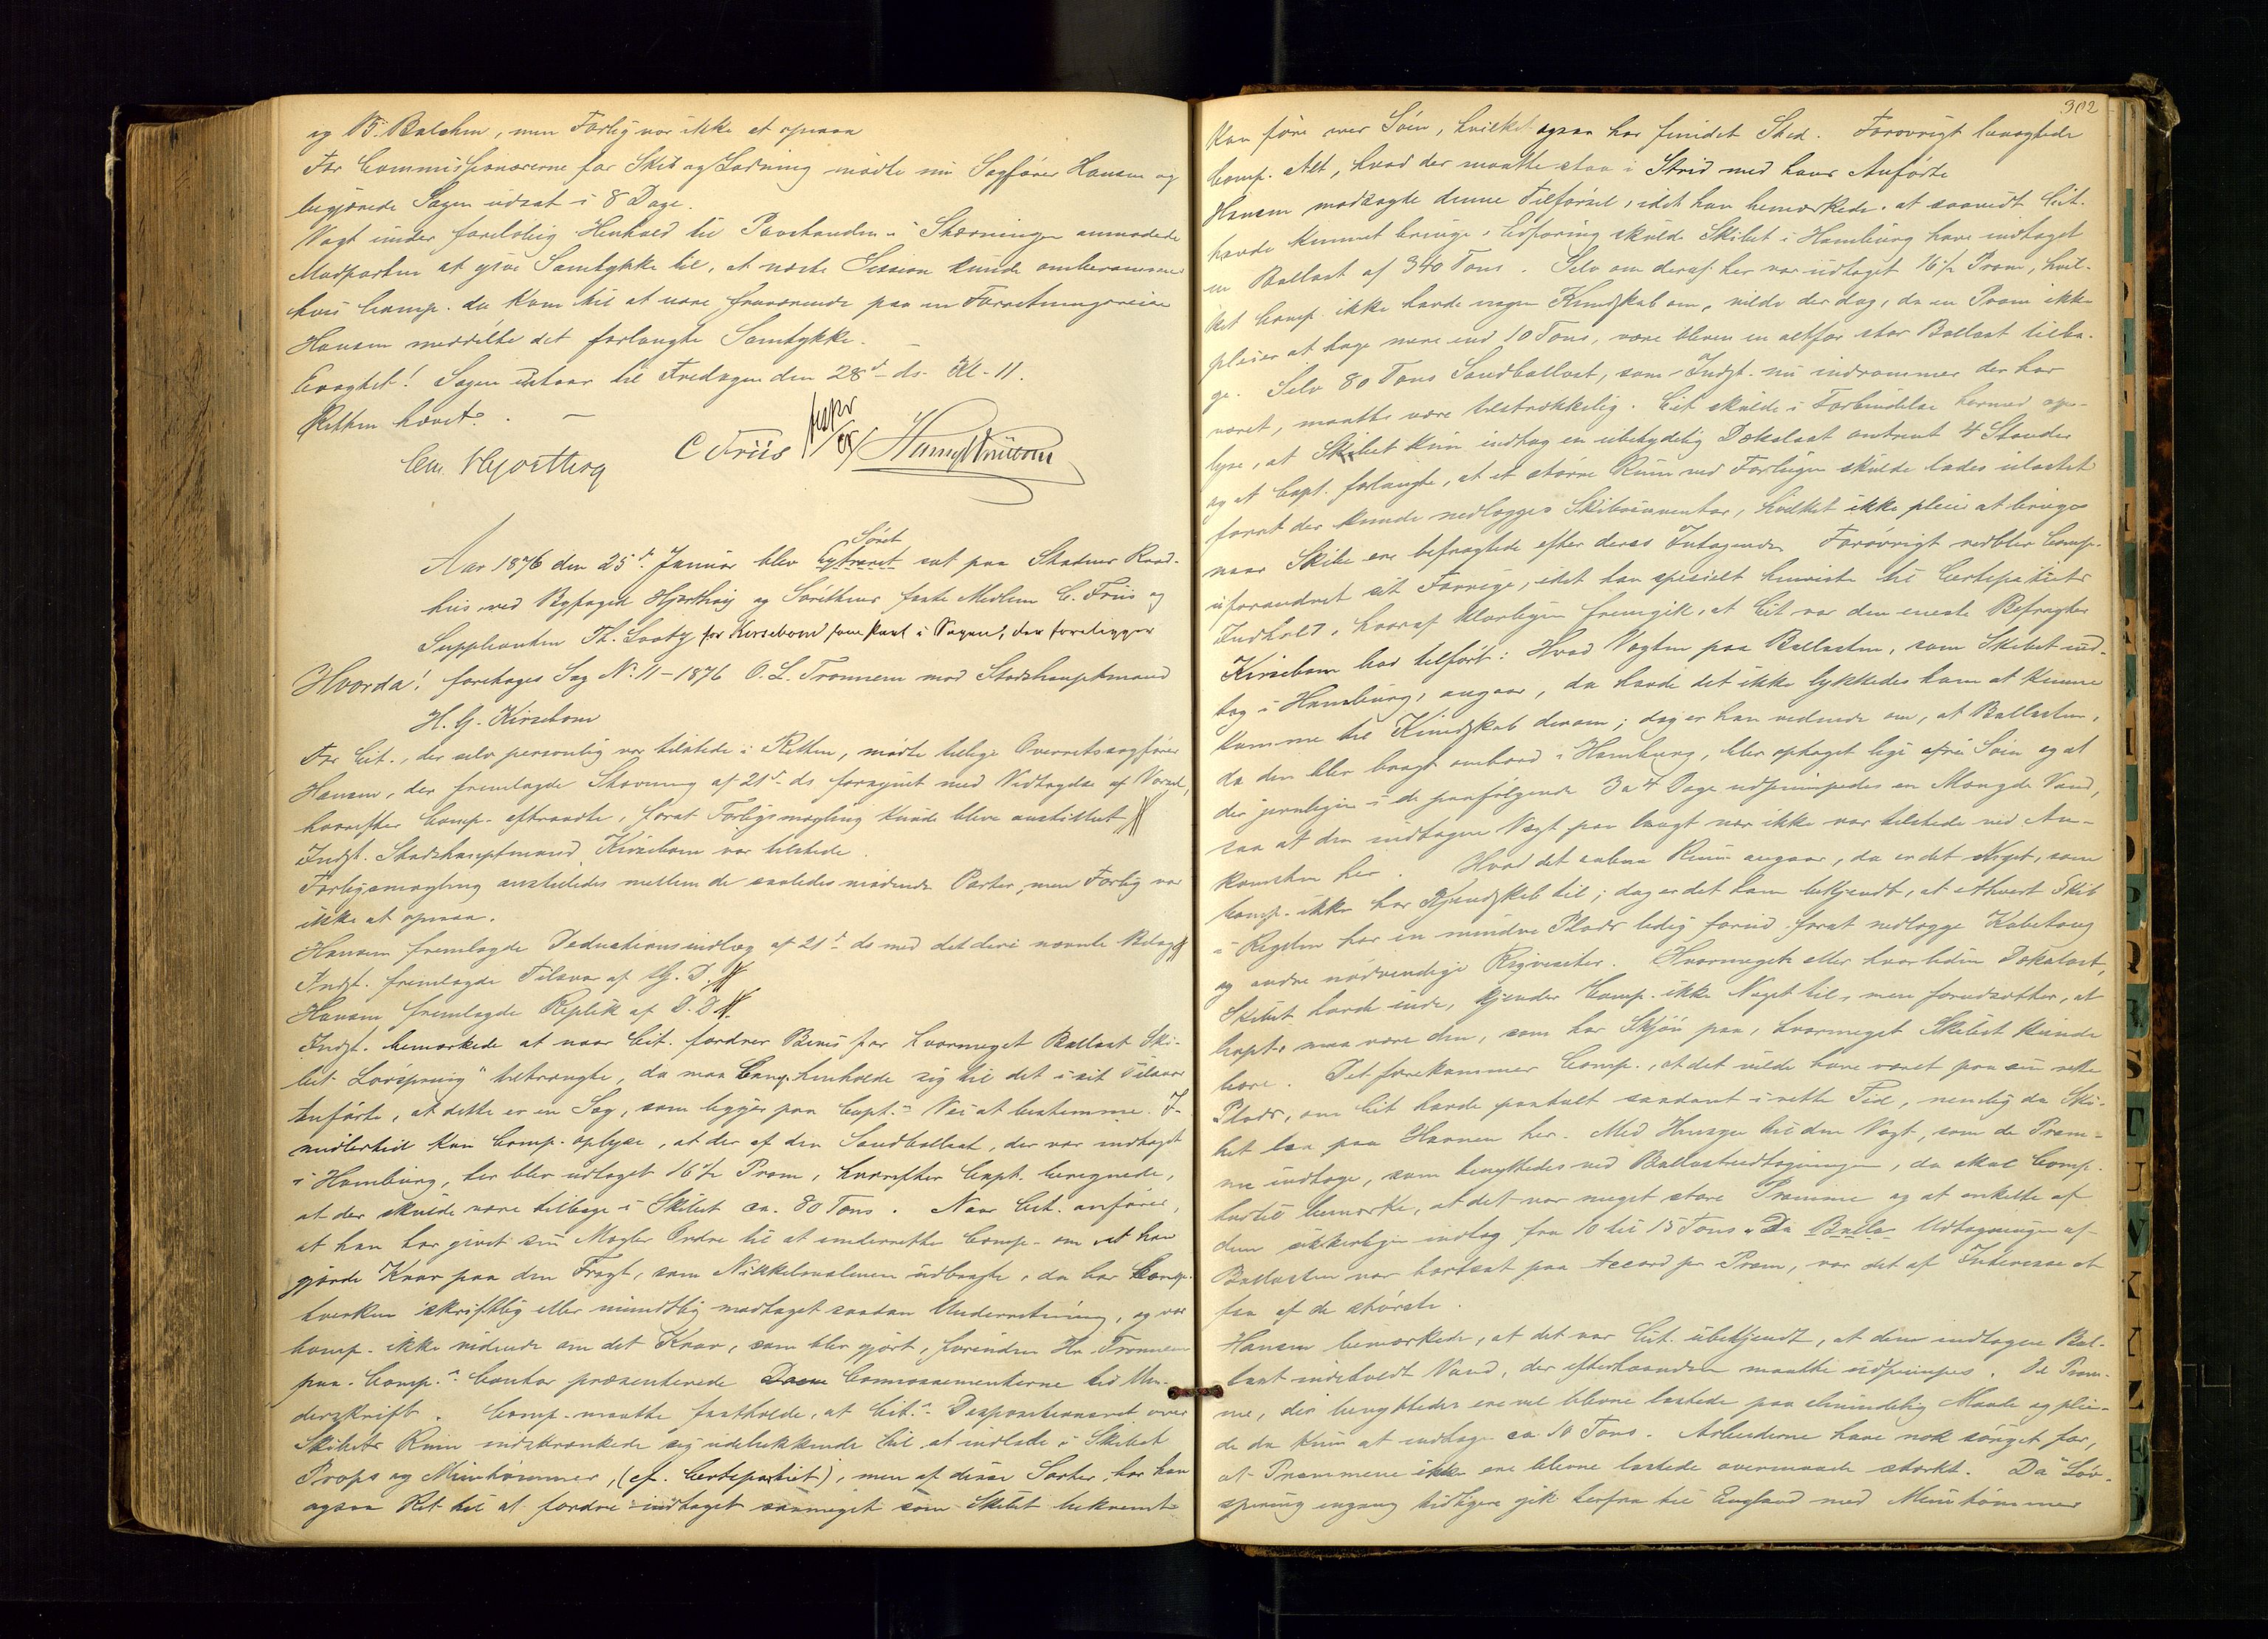 og B. Balchen, men Forlig var ikke at opnaa
For Commissionærerne for Skib og Ladning mødte nu Sagfører Hansen og
begjærede Sagen udsat i 8 Dage.
Vogt under foreløbig Henhold til Paastanden i Stævningen anmodede
Modparten at give Samtykke til, at næste Session kunde omberammes
hvis Comp. da kom til at være fraværende paa en Forretningsreise
Hansen meddelte det forlangte Samtykke. –
Eragtet! Sagen udstaar til Fredagen den 28d ds. Kl. 11.
Retten hævet. –
Chr. Hjorthøg C Friis
Søret
Aar 1876 den 25de Januar blev Extraret sat paa Stadens Raad-
huus ved Byfoged Hjorthøy og Sørettens faste Medlem C. Friis og
Suppleanten Th. Lootz for Kirsebom som part i Sagen, der foreligger
Hvorda! foretages Sag No 11 – 1876 O. L. Tronnem mod Stadshauptmand
H. G. Kirsebom
For Cit., der selv personlig var tilstede i Retten, mødte tillige Overretssagfører
Hansen, der fremlagde Stævning af 21de ds forsynet med Vedtagelse af Varsel,
hvorefter Comp. eftersaadte, forat Forligsmægling kunde blive anstillet
Indst. Stadshauptmand Kirsebom var tilstede
Forligsmægling anstilledes mellem de saaledes mødende Parter, men Forlig var
ikke at opnaa.
Hansen fremlagde Deductionsindlæg af 21de ds med det deri nævnte Bilag
Indst. fremlagde Tilsvar af G. D.
Hansen fremlagde Replik af D. D.
Indst. bemærkede at naar Cit. fordrer Beviis for hvormeget Ballast Ski-
bet "Løvspring" tiltrængte, da maa Comp. henholde sig til det i sit Tilsvar
Anførte, at dette er en Sag, som ligger paa Capt.s Vei at bestemme. I-
midlertid kan Comp. oplyse, at der af den Sandballast, der var indtaget
i Hamburg, her blev udtaget 16½ Pram, hvorefter Capt. beregnede,
at der skulde være tilbage i Skibet ca. 80 Tons. Naar Cit. anfører,
at han har givet sin Mægler Ordre til at underrette Comp. om at han
gjorde Krav paa den Fragt, som Nikkelmalmen udbragte, da har Comp.
hverken skriftlig eller mundtlig modtaget saadan Underretning, og var
Comp. ikke vidende om det Krav, som blev gjort, førinden Hr. Tronnem
paa Comp.s Contor præsenterede Connossementerne til Un-
derskrift. Comp. maatte fastholde, at Cit.s Dispositionsret over
Skibets Rum indskrænkede sig udelukkende til at indlade i Skibet
Props og Minetømmer, (cf. Certepartiet), men af disse Sorter har han
ogsaa Ret til at fordre indtaget saameget som Skibet bekvemt
302
kan føre over Søen, hvilket ogsaa har fundet Sted. Forøvrigt benægtede
Comp. Alt, hvad der maatte staa i Strid med hans Anførte
Hansen modsagde denne Tilførsel, idet han bemærkede, at saavidt Cit.
havde kunnet bringe i Erfaring skulde Skibet i Hamburg have indtaget
en Ballast af 340 Tons. Selv om deraf her var udtaget 16½ Pram, hvil-
ket Comp. ikke havde nogen Kundskab om, vilde der dog, da en Pram ikke
pleier at tage mere end 10 Tons, være bleven en altfor stor Ballast tilba-
ge. Selv 80 Tons Sandballast, som Indst. nu indrømmer der har
været, maatte være tilstrækkelig. Cit skulde i Forbindelse hermed op-
lyse, at Skibet kun indtog en ubetydelig Dækslast omtrent 4 Stander
og at Capt. forlangte, at et større Rum ved Forlugen skulde lades ulastet
forat der kunde nedlægges Skibsinventar, hvilket ikke pleier at bringes
naar Skibe ere befragtede efter deres Indtagende. Forøvrigt nedblev Comp.
uforandret sit Forrige, idet han specielt henviste til Certepartiets
Indhold, hvoraf klarligen fremgik, at Cit var den eneste Befragter
Kirsebom har tilført: Hvad Vægten paa Ballasten, som Skibet ind-
tog i Hamburg, angaar, da havde det ikke lykkedes ham at kunne
komme til Kundskab derom; dog er han vidende om, at Ballasten,
da den blev bragt ombord i Hamburg, blev optaget lige af Søen og at
der jevnligen i de paafølgende 3 a 4 Dage udpumpedes en Mængde Vand,
saa at den indtagne Vægt paa langt nær ikke var tilstede ved An-
komsten her. Hvad det aabne Rum angaar, da er det Noget, som
Comp. ikke har Kjendskab til; dog er det ham bekjendt, at ethvert Skib
i Regelen har en mindre Plads ledig forud forat nedlægge Kabeltoug
og andre nødvendige Requisiter. Hvormeget eller hvorliden Dækslast,
Skibet havde inde, kjender Comp. ikke Noget til, men forudsætter, at
Capt. maa være den, som har Skjøn paa, hvormeget Skibet kunde
bære. Det forekommer Comp., at det vilde have været paa sin rette
Plads, om Cit havde paatalt saadant i rette Tid, nemlig da Ski-
bet laa paa Havnen her. Med Hensyn til den Vægt, som de Pram-
me indtoge, som benyttedes ved Ballastudtagningen, da skal Comp.
hertil bemærke, at det var meget store Pramme og at enkelte af
dem sikkerligen indtog fra 10 til 15 Tons. Da Balla- Udtagningen af
Ballasten var bortsat paa Accord pr Pram, var det af Interesse at
faa af de største.
Hansen bemærkede, at det var Cit. ubekjendt, at den indtagne Bal-
last indeholdt Vand, der efterhaanden maatte udpumpes. De Pram-
me, der benyttedes ere vel blevne lastede paa almindelig Maade og plei-
de da kun at indtage ca 10 Tons. Arbeiderne have nok sørget for,
at Prammene ikke ere blevne lastede overmaade stærkt. Da "Løv-
spring engang tidligere gik herfra til England med Minetømmer